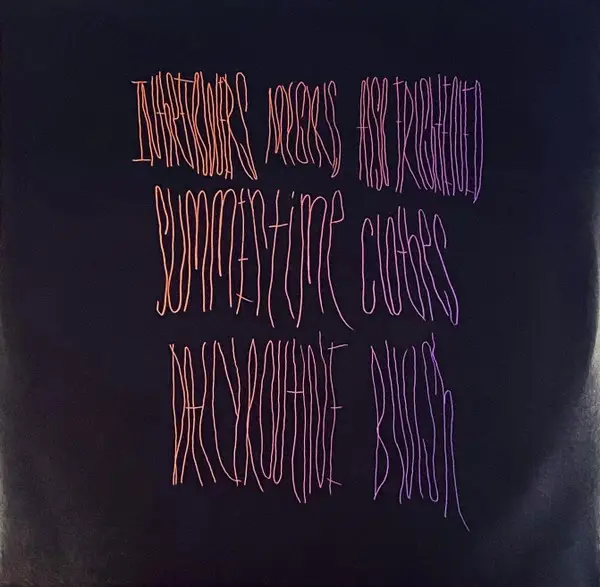 IN THE FLOWERS MY GIRLS ALSO FRIGHTENED
SUMMERTIME CLOTHES
DAILY ROUTINE BLUISH